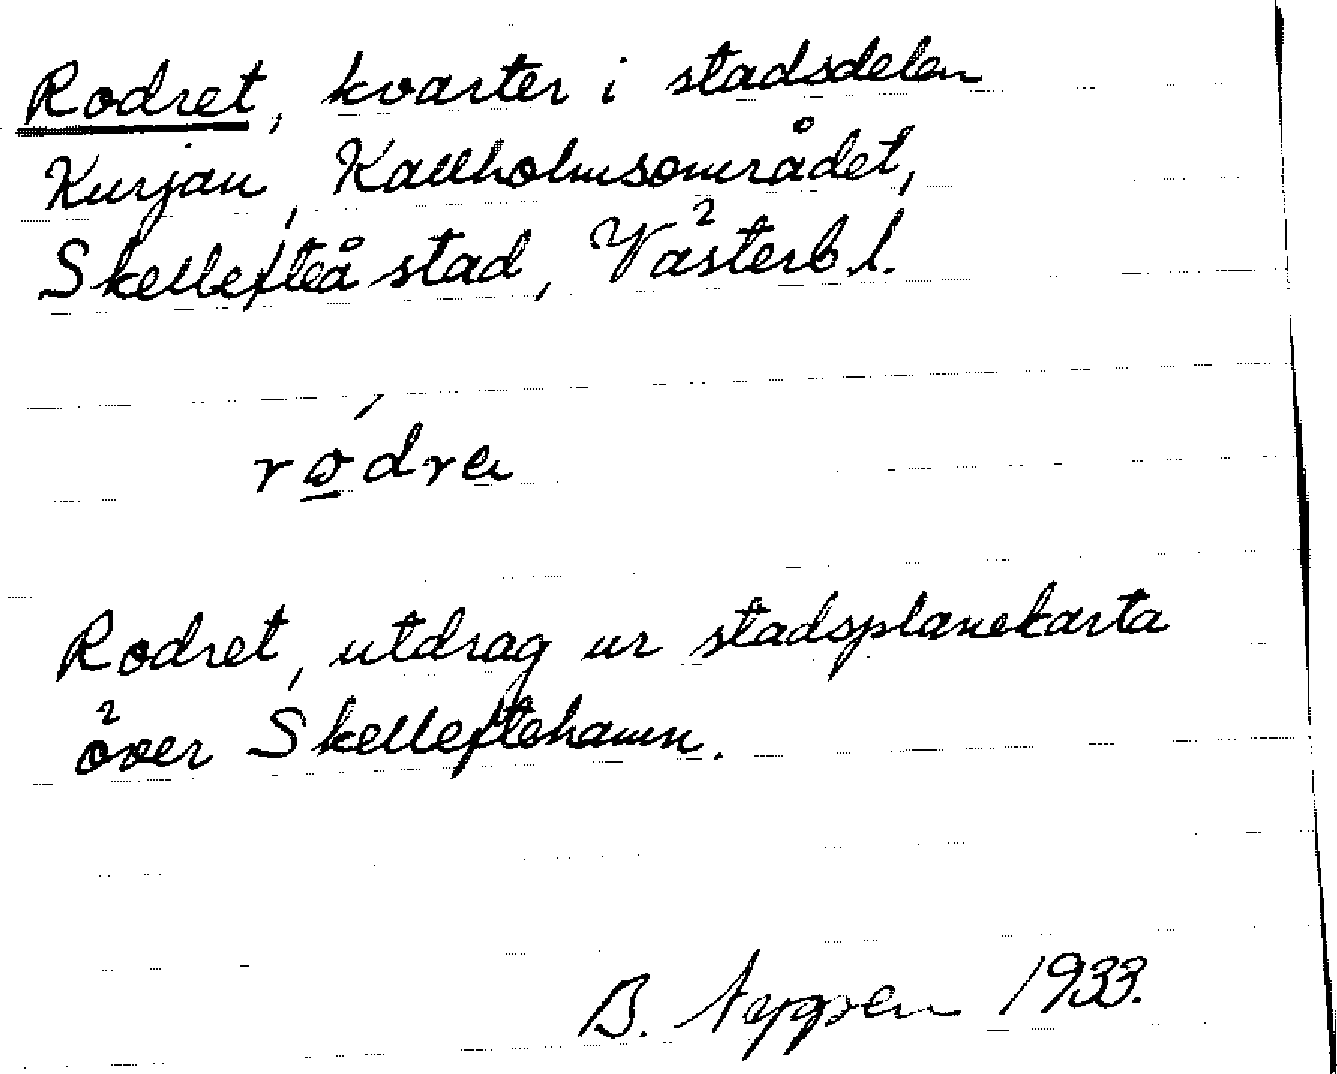 Rodret, kvarter i stadsdelen
Kurjan, Kallholmsområdet,
Skellefteå stad, Västerb. l.
rodre
Rodret, utdrag ur stadsplanekarta
över Skelleftehamn.
B. 1933.